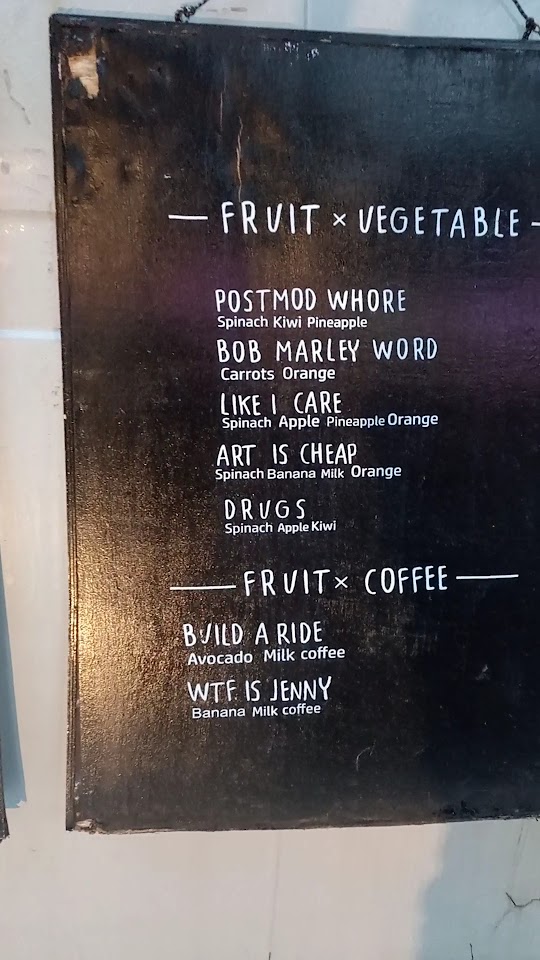 — FRUIT × VEGETABLE —
POSTMOD WHORE
Spinach Kiwi Pineapple
BOB MARLEY WORD
Carrots Orange
LIKE I CARE
Spinach Apple Pineapple Orange
ART IS CHEAP
Spinach Banana Milk Orange
DRUGS
Spinach Apple Kiwi
— FRUIT × COFFEE —
BUILD A RIDE
Avocado Milk coffee
WTF IS JENNY
Banana Milk coffee